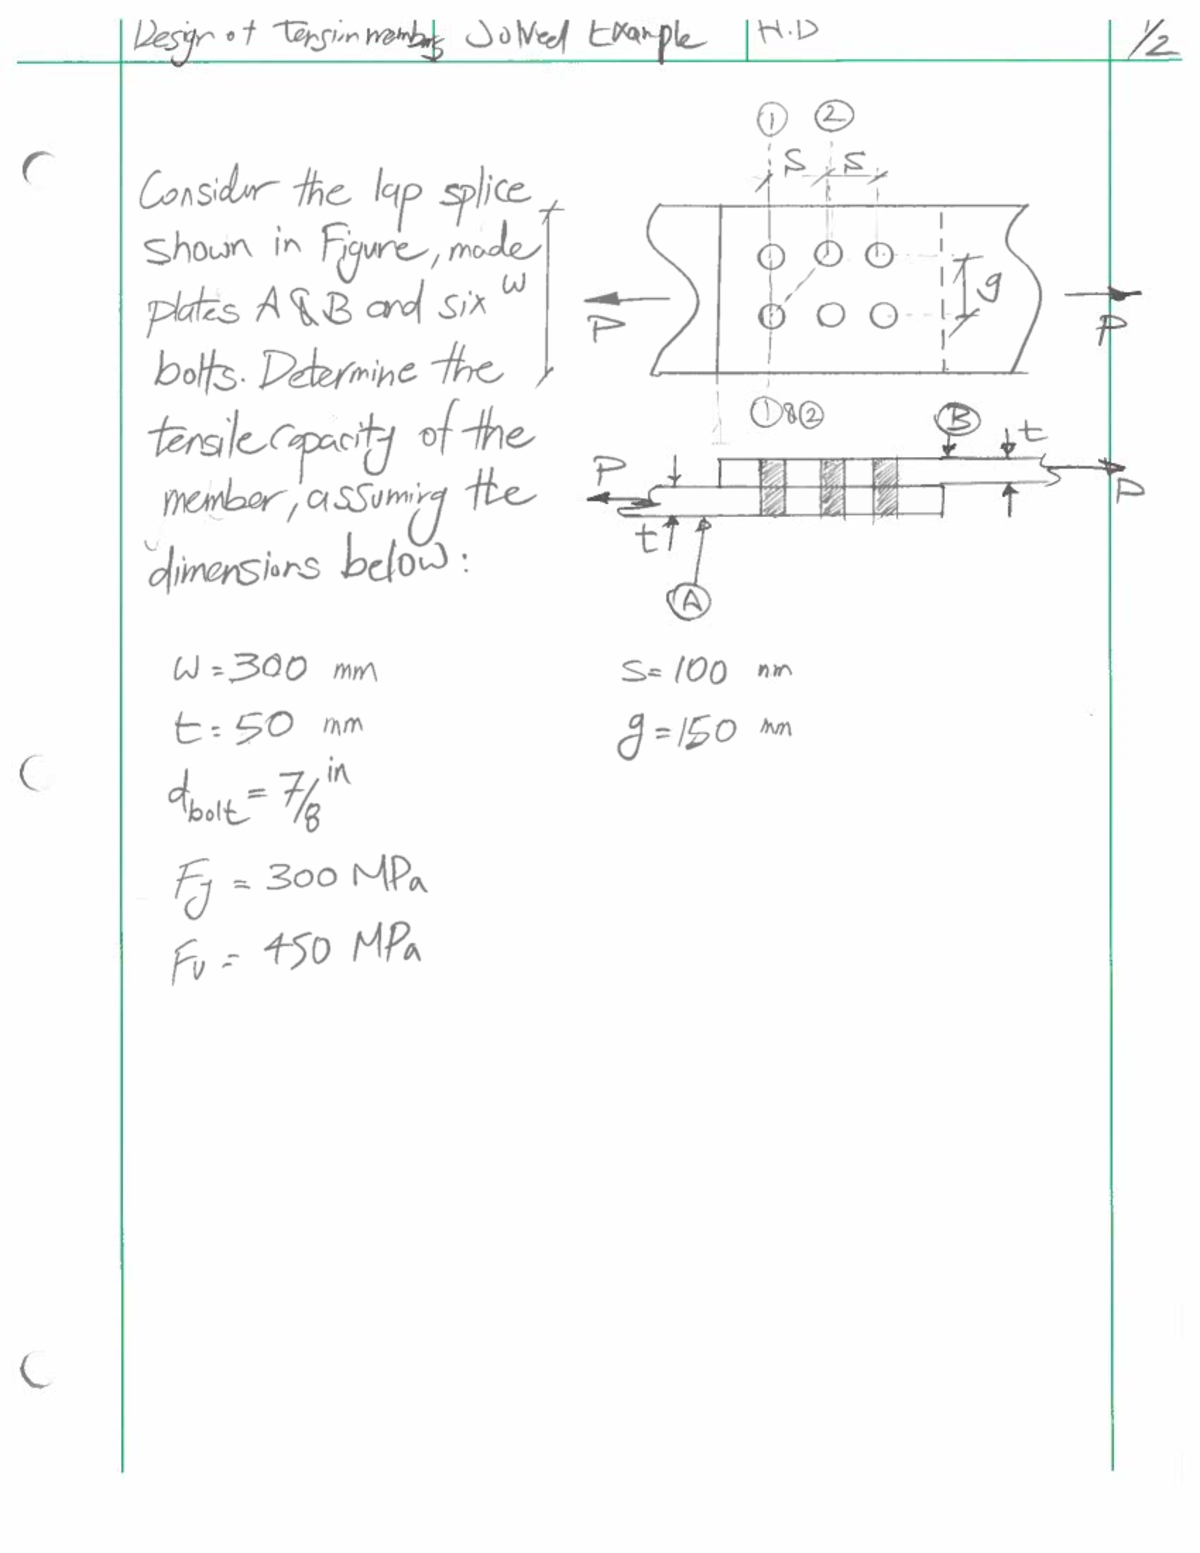 Design of Tension members Solved Example H.D 1/2
① ②
S S
Consider the lap splice
shown in Figure, made
plates A & B and six
bolts. Determine the
tensile capacity of the
member, assuming the
dimensions below:
w
g
P P
①&②
B
t
P P
t
A
w = 300 mm
t = 50 mm
d bolt = 7/8 in
Fy = 300 MPa
Fu = 450 MPa
S = 100 mm
g = 150 mm